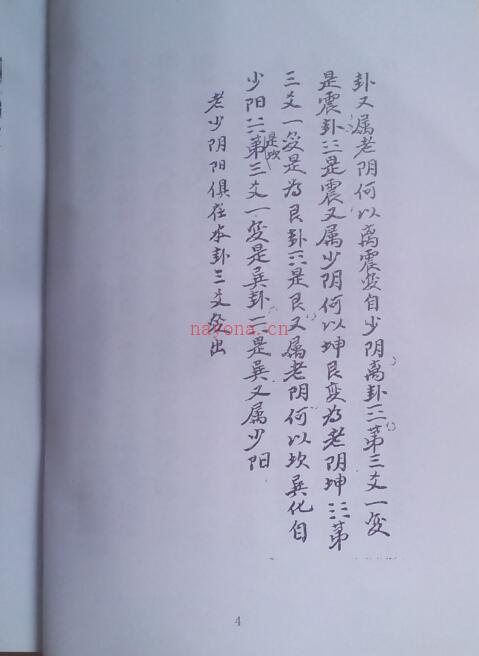 卦又属老阴何以离震变自少阴离卦☲第三爻一变
是震卦☳是震又属少阴何以坤艮变为老阴坤☷第
三爻一变是为艮卦☶是艮又属老阴何以坎巽化自
少阳☵是坎第三爻一变是巽卦☴是巽又属少阳
老少阴阳俱在本卦三爻分出
nayona.cn
4